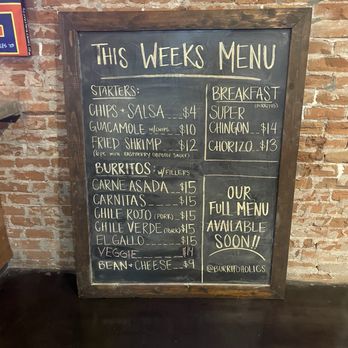 THIS WEEKS MENU
STARTERS:
CHIPS + SALSA $4
GUACAMOLE W/CHIPS $10
FRIED SHRIMP $12
BURRITOS: W/FILLERS
CARNE ASADA $15
CARNITAS $15
CHILE ROJO (PORK) $15
CHILE VERDE (PORK) $15
EL GALLO $15
VEGGIE $14
BEAN + CHEESE $9
BREAKFAST
(BURRITOS)
SUPER
CHINGON $14
CHORIZO $13
OUR
FULL MENU
AVAILABLE
SOON!!
@BURRITOHOLICS